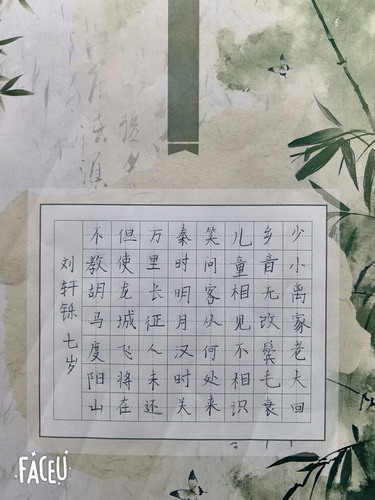 少小离家老大回
乡音无改鬓毛衰
儿童相见不相识
笑问客从何处来
秦时明月汉时关
万里长征人未还
但使龙城飞将在
不教胡马度阳山
刘轩铄 七岁
FACEU